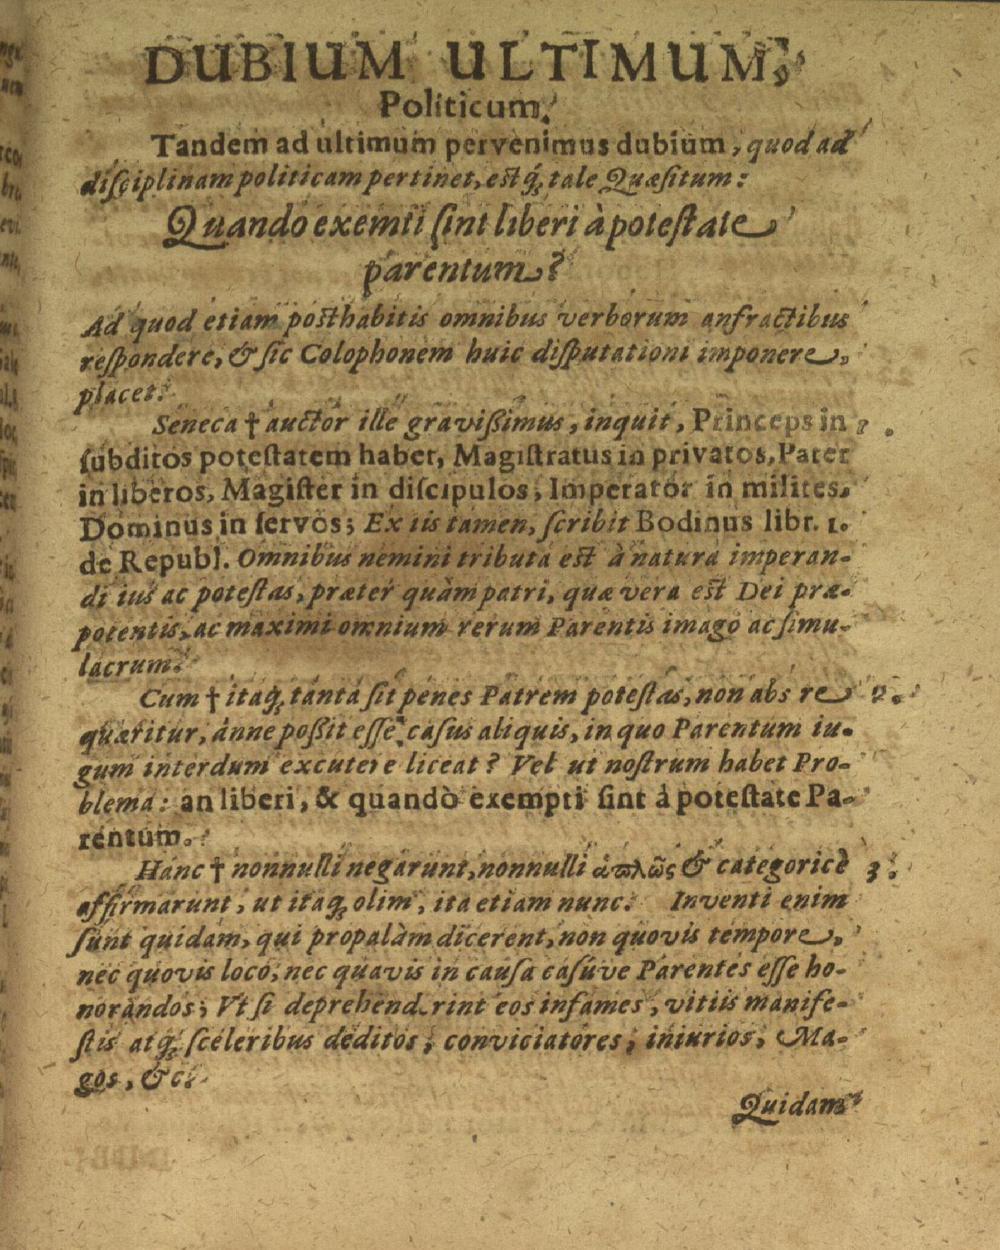 DUBIUM ULTIMUM,
Politicum.
Tandem ad ultimum pervenimus dubium, quod ad
disciplinam politicam pertinet, est q́; tale Quæsitum:
Quando exemti sint liberi à potestate
parentum?
Ad quod etiam posthabitis omnibus verborum anfractibus
respondere, & sic Colophonem huic disputationi imponere,
placet.
Seneca † auctor ille gravißimus, inquit, Princeps in
subditos potestatem habet, Magistratus in privatos, Pater
in liberos, Magister in discipulos, Imperator in milites,
Dominus in servos; Ex iis tamen, scribit Bodinus libr. 1.
de Republ. Omnibus nemini tributa est à natura imperan-
di ius ac potestas, præter quàm patri, quæ vera est Dei præ-
potentis, ac maximi omnium rerum Parentis imago ac simu-
lacrum.
Cum † itaq́; tanta sit penes Patrem potestas, non abs re 2.
quæritur, anne poßit esse casus aliquis, in quo Parentum iu-
gum interdum excutere liceat? Vel ut nostrum habet Pro-
blema: an liberi, & quandò exempti sint à potestate Pa-
rentum.
Hanc † nonnulli negarunt, nonnulli ἁπλῶς & categoricè 3.
affirmarunt, ut itaq́; olim, ita etiam nunc. Inventi enim
sunt quidam, qui propalàm dicerent, non quovis tempore,
nec quovis loco, nec quavis in causa casúve Parentes esse ho-
norandos; Vt si deprehenderint eos infames, vitiis manife-
stis atq́; sceleribus deditos, conviciatores, iniurios, Ma-
gos, &c.
Quidam